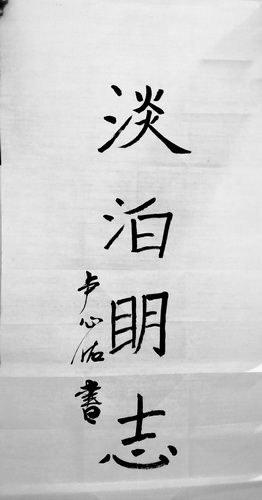 淡泊明志
卢心佑書